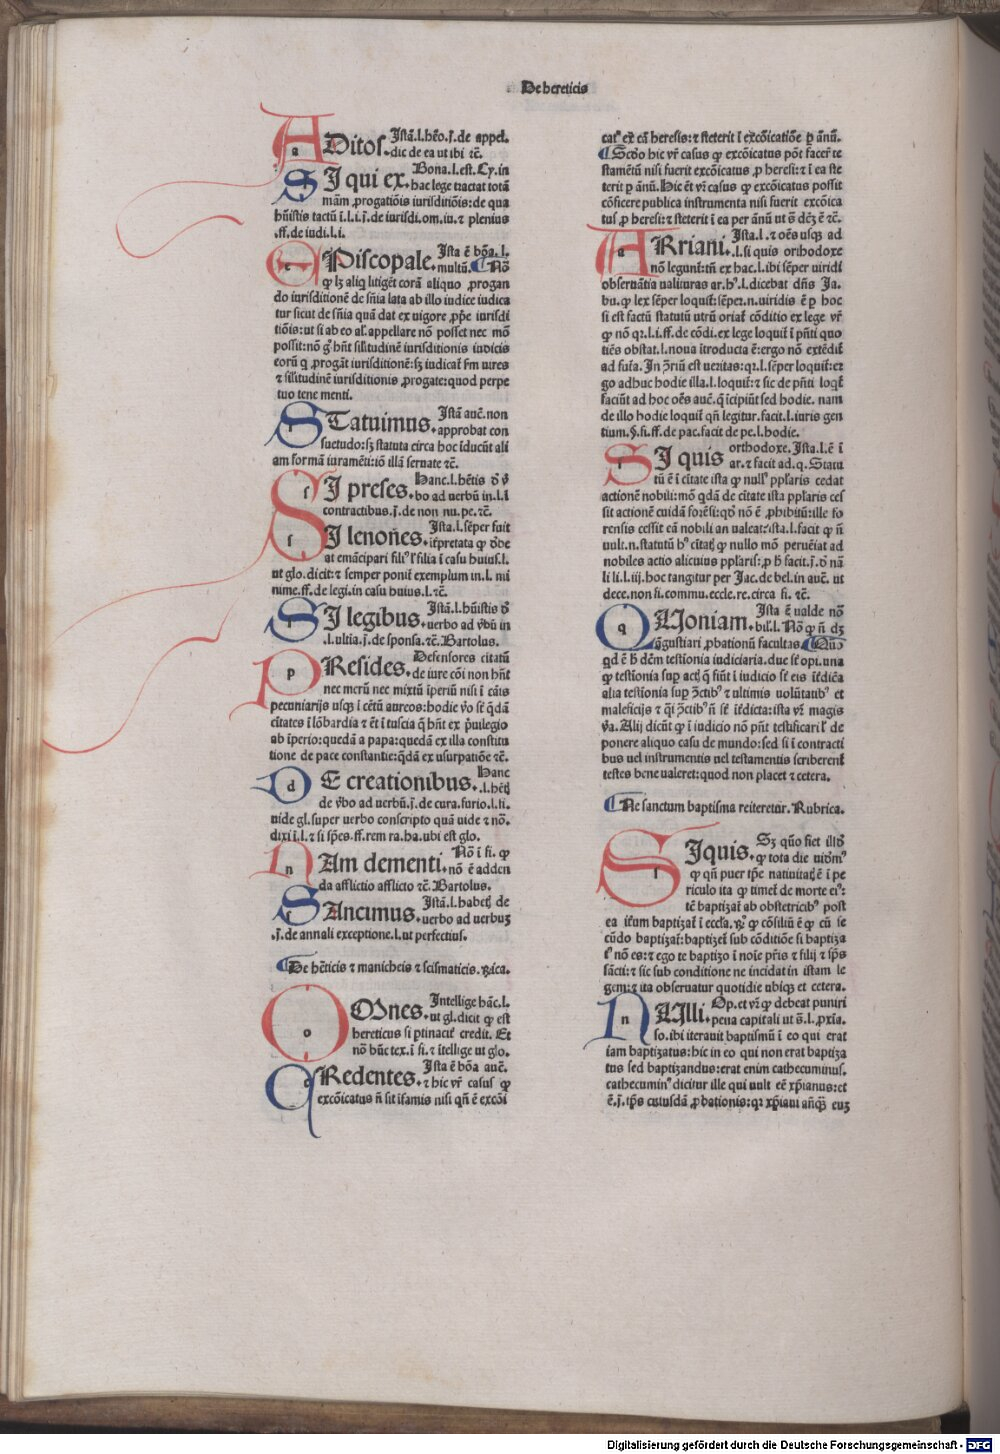 De hereticis
ADitos. Istā.l.hēo.j.de appel.
dic de ea ut ibi ⁊c̄.
SI qui ex. Bona.l.est.Cy.in
hac lege tractat totā
mām ꝓrogatiōis iurisditiōis: de qua
.ff.de iudi.l.i.
EPiscopale. Ista ē bōa.l.
multū. ¶Nō
do iurisditionē de sn̄ia lata ab illo iudice iudica
tur sicut de sn̄ia quā dat ex uigore ꝓpe iurisdi
tiōis: ut si ab eo al'. appellare nō posset nec mō
possit: nō g̊ hn̄t silitudinē iurisditionis iudicis
⁊ silitudinē iurisditionis ꝓrogate: quod perpe
tuo tene menti.
STatuimus. Istā auc̄. non
approbat con
suetudo: sꝫ statuta circa hoc īducūt ali
am formā iuramēti: iō illā seruate ⁊c̄.
SI preses. Hanc.l.hētis
bo ad uerbū in.l.i
contractibus.j.de non nu.pe.⁊c̄.
SI lenones. Ista.l.sēper fuit
ut glo.dicit: ⁊ semper ponit exemplum in.l. mi
nime.ff.de legi.in casu huius.l.⁊c̄.
SI legibus.
.l.ultia.j.de sponsa.⁊c̄.Bartolus.
PResides. Defensores citatū
de iure cōi non hn̄t
nec merū nec mixtū īperiū nisi ī cāis
pecuniarijs usqꝫ ī cētū aureos: hodie ẏo sē q̄dā
citates ī lōbardia ⁊ ēt ī tuscia q̄ hn̄t ex p̄uilegio
ab īperio: quedā a papa: quedā ex illa constitu
tione de pace constantie: q̄dā ex usurpatiōe ⁊c̄.
DE creationibus. Hanc
uide gl.super uerbo conscripto quā uide ⁊ nō.
dixi ī.l. ⁊ si sp̄es.ff.rem ra.ha.ubi est glo.
NAm dementi. Nō ī fi. ꝙ
nō ē adden
da afflictio afflicto ⁊c̄. Bartolus.
SAncimus. Istā.l.habetꝭ de
uerbo ad uerbuꝫ
.j.de annali exceptione.l.ut perfectius.
¶De hēticis ⁊ manicheis ⁊ scismaticis. Rīca.
OMnes. Intellige hāc.l.
ut gl.dicit ꝙ est
hereticus si ptinacit̄ credit. Et
nō hūc tex.ī fi.⁊ ītellige ut glo.
QRedentes. Ista ē bōa auc̄.
⁊ hic vr̄ casus ꝙ
excōicatus n̄ sit īfamis nisi qn̄ ē excōi
cat' ex cā heresis: ⁊ steterit ī excōicatiōe p̄ ānū.
¶Scd̄o hic vr̄ casus ꝙ excōicatus pōt facer̄ te
stamētū nisi fuerit excōicatus ꝓ heresi: ⁊ ī ea ste
terit p̄ ānū. Hic ēt vr̄ casus ꝙ excōicatus possit
cōficere publica instrumenta nisi fuerit excōica
tus ꝓ heresi: ⁊ steterit ī ea per ānū
ARriani. Ista.l. ⁊ oēs usqꝫ ad
.l.si quis orthodoxe
nō legunt̄: tn̄ ex hac.l.ibi sēper uiridi
obseruātia ualituras ar.h'.l.dicebat dn̄s Ja.
bu.ꝙ lex sēper loquit̄: sēper.n.uiridis ē p̄ hoc
si est factū statutū utrū oriat̄ cōditio ex lege vr̄
ꝙ nō qꝛ.l.i.ff.de cōdi.ex lege loquit̄ ī p̄nti quo
tiēs obstat.l.noua ītroducta ē: ergo nō extēdit̄
ad fut̄a. In ꝯriū est ueritas: qꝛ.l.sēper loquit̄: er
go adhuc hodie illa.l.loquit̄: ⁊ sic de p̄nti loqt̄
faciūt ad hoc oēs auc̄.q̄ īcipiūt sed hodie. nam
de illo hodie loquit̄ qn̄ legitur.facit.l.iuris gen
tium.§.si.ff.de pac.facit de pe.l.hodie.
SI quis orthodoxe. Ista.l.ē ī
ar. ⁊ facit ad.q. Statu
tū ē ī citate ista ꝙ null' pplaris cedat
actionē nobili: mō q̄dā de citate ista pplaris ces
sit actionē cuidā forēsi: qd̄ nō ē ꝓhibitū: ille fo
rensis cessit eā nobili an ualeat: ista.l.facit ꝙ n̄
uult.n.statutū
nobiles actio alicuius pplaris:
li li.l.iij.hoc tangitur per Jac.de bel.in auc̄. ut
dece.non si.commu.eccle.re.circa fi. ⁊c̄.
QUoniam. Ista ē ualde nō
āgustiari ꝓbationū facultas.
qd ē
ꝙ testīonia sup actꝭ q̄ fiūt ī iudicio sē eis īt̄dicā
alia testīonia sup ꝯctib' ⁊ ultimis uolūtatib' et
ẏa. Alij dicūt ꝙ ī iudicio nō pn̄t testificari l' de
ponere aliquo casu de mundo: sed si ī contracti
bus uel instrumentis uel testamentis scriberent̄
testes bene ualeret: quod non placet ⁊ cetera.
¶Ne sanctum baptisma reiteretur. Rubrica.
SIquis. Sꝫ qūo fiet
ꝙ tota die uidem'
ꝙ qn̄ puer tp̄e natiuitatꝭ ē ī pe
riculo ita ꝙ timet̄ de morte ei':
tē baptizat̄ ab obstetricib' post
ea it̄um baptizat̄ ī eccl'a.
cūdo baptizat̄: baptizet̄ sub cōditiōe si baptiza
t' nō es: ⁊ ego te baptizo ī noīe pr̄is ⁊ filij ⁊ sp̄s
sācti: ⁊ sic sub conditione ne incidat in istam le
gem: ⁊ ita obseruatur quotidie ubiqꝫ et cetera.
NUlli. Op. et vꝫ ꝙ debeat puniri
pena capitali
so.ibi iterauit baptismū ī eo qui erat
iam baptizatus: hic in eo qui non erat baptiza
tus sed baptizandus: erat enim cathecuminus.
cathecumin' dicitur ille qui uult eē xp̄ianus: et
Digitalisierung gefördert durch die Deutsche Forschungsgemeinschaft - DFG